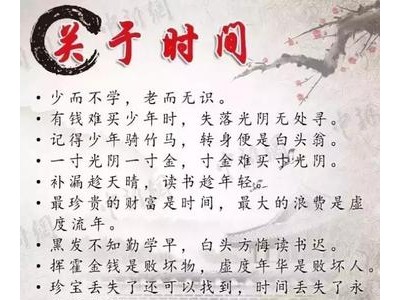 关于时间
• 少而不学，老而无识。
• 有钱难买少年时，失落光阴无处寻。
• 记得少年骑竹马，转身便是白头翁。
• 一寸光阴一寸金，寸金难买寸光阴。
• 补漏趁天晴，读书趁年轻。
• 最珍贵的财富是时间，最大的浪费是虚
度流年。
• 黑发不知勤学早，白头方悔读书迟。
• 挥霍金钱是败坏物，虚度年华是败坏人。
• 珍宝丢失了还可以找到，时间丢失了永